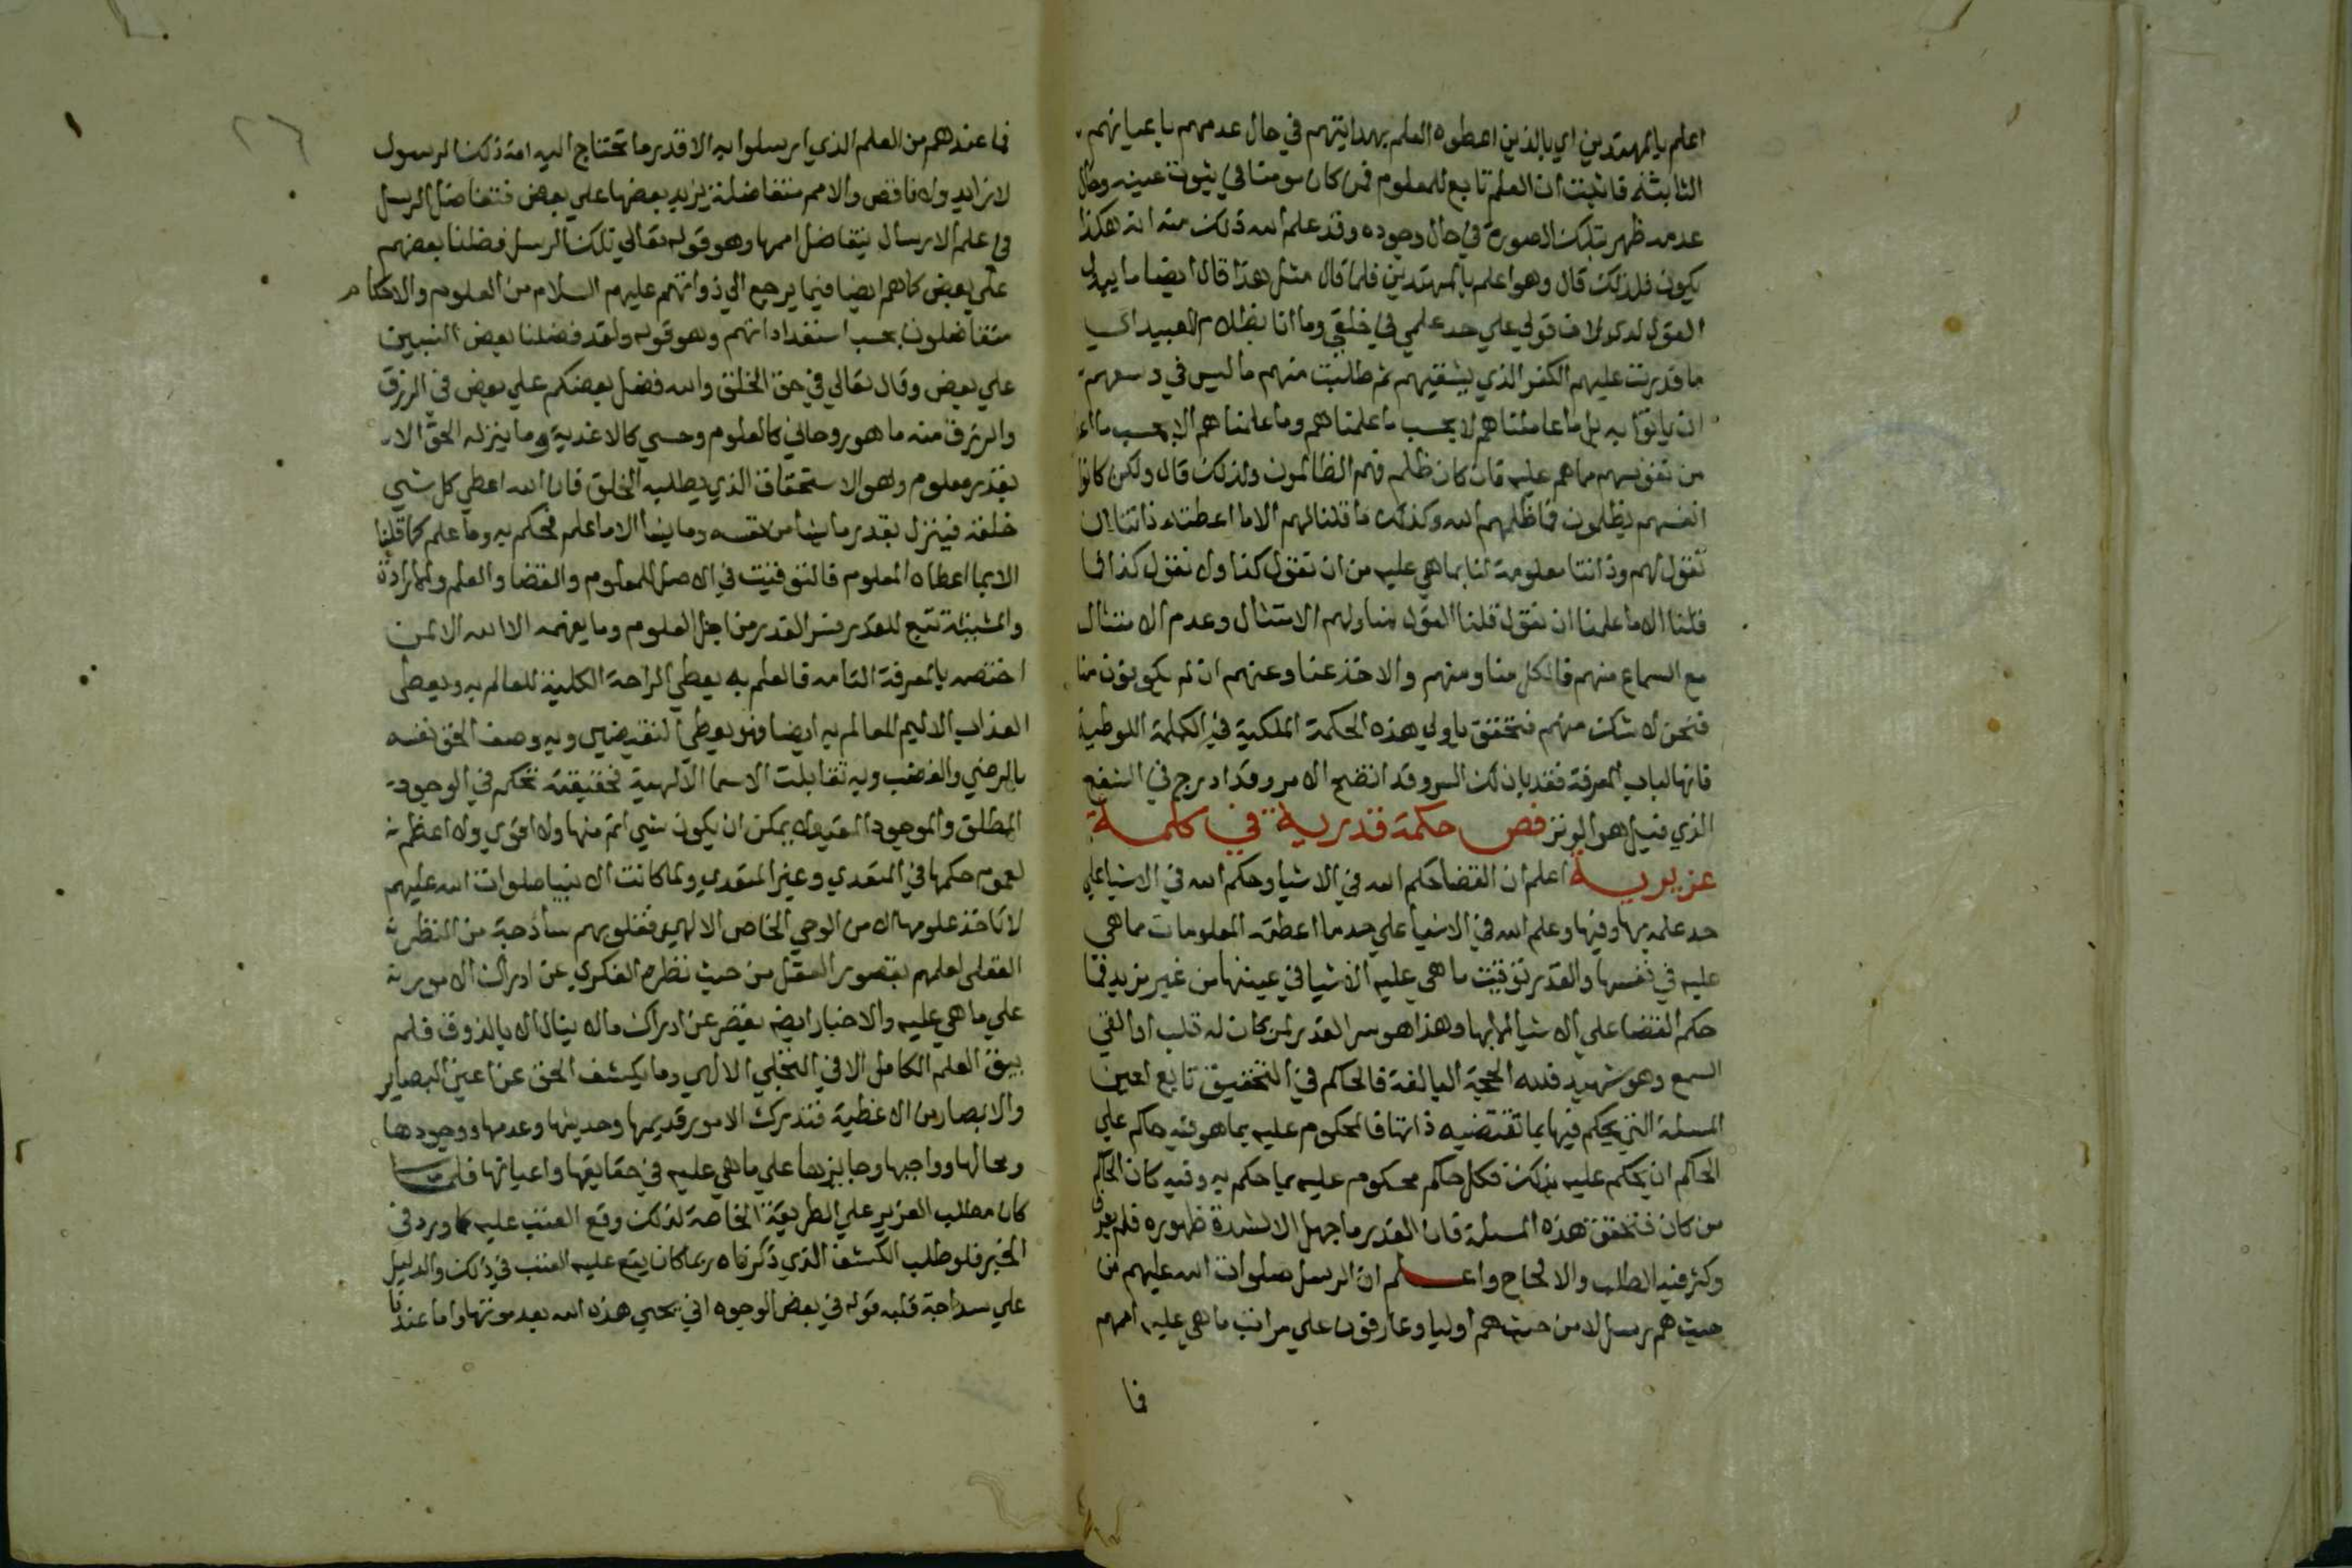 اعلم بالمهتدين اي بالذين اعطوه العلم بهدايتهم في حال عدمهم باعيانهم
الثابتة فاثبت ان العلم تابع للمعلوم فمن كان مومنا في ثبوت عينه وحال
عدمه ظهر بتلك الصورة في حال وجوده وقد علم الله ذلك منه انه هكذا
يكون فلذلك قال وهو اعلم بالمهتدين فلما قال مثل هذا قال ايضا ما يبدل
القول لدي لان قولي علي حد علمي في خلقي وما انا بظلام للعبيد اي
ما قدرت عليهم الكفر الذي يشقيهم ثم طالبت منهم ما ليس في وسعهم
ان ياتوا به بل ما عاملناهم الا بحسب ما علمناهم وما علمناهم الا بحسب ما
من نفوسهم مما هم عليه فان كان ظلم فهم الظالمون ولذلك قال ولكن كانوا
انفسهم يظلمون فما ظلمهم الله وكذلك ما قلنا لهم الا ما اعطته ذاتنا ان
نقول لهم وذاتنا معلومة لنا بما هي عليه من ان نقول كذا ولا نقول كذا فما
قلنا الا ما علمنا ان نقول قلنا القول منا ولهم الامتثال وعدم الامتثال
مع السماع منهم فالكل منا ومنهم والاخذ عنا وعنهم ان لم يكونون منا
فنحن لا شك منهم فتحقق يا ولي هذه الحكمة الملكية في الكلمة اللوطية
فانها لباب المعرفة فقد بان لك السر وقد اتضح الامر وقد ادرج في الشفع
الذي قيل هو الوتر فص حكمة قدرية في كلمة
عزيرية اعلم ان القضا حكم الله في الاشيا وحكم الله في الاشيا علي
حد علمه بها وفيها وعلم الله في الاشيا علي حد ما اعطته المعلومات مما هي
عليه في نفسها والقدر توقيت ما هي عليه الاشيا في عينها من غير مزيد فما
حكم القضا علي الاشيا الا بها وهذا هو سر القدر لمن كان له قلب او القي
السمع وهو شهيد فلله الحجة البالغة فالحاكم في التحقيق تابع لعين
المسئلة التي يحكم فيها بما تقتضيه ذاتها فالمحكوم عليه بما هو فيه حاكم علي
الحاكم ان يحكم عليه بذلك فكل حاكم محكوم عليه بما حكم به وفيه كان الحاكم
من كان فتحقق هذه المسئلة فان القدر ما جهل الا لشدة ظهوره فلم يعرف
وكثر فيه الطلب والالحاح واعلم ان الرسل صلوات الله عليهم من
حيث هم رسل لا من حيث هم اوليا وعارفون علي مراتب ما هي عليه اممهم
فما
فما عندهم من العلم الذي ارسلوا به الا قدر ما تحتاج اليه امة ذلك الرسول
لا زايد ولا ناقص والامم متفاضلة يزيد بعضها علي بعض فتتفاضل الرسل
في علم الارسال بتفاضل اممها وهو قوله تعالي تلك الرسل فضلنا بعضهم
علي بعض كما هم ايضا فيما يرجع الي ذواتهم عليهم السلام من العلوم والاحكام
متفاضلون بحسب استعداداتهم وهو قوله ولقد فضلنا بعض النبيين
علي بعض وقال تعالي في حق الخلق والله فضل بعضكم علي بعض في الرزق
والرزق منه ما هو روحاني كالعلوم وحسي كالاغذية وما ينزله الحق الا
بقدر معلوم وهو الاستحقاق الذي يطلبه الخلق فان الله اعطي كل شي
خلقه فينزل بقدر ما يشا وما يشا الا ما علم فحكم به وما علم كما قلنا
الا بما اعطاه المعلوم فالتوقيت في الاصل للمعلوم والقضا والعلم والارادة
والمشيئة تبع للقدر فسر القدر من اجل العلوم وما يفهمه الا الله الا لمن
اختصه بالمعرفة التامة فالعلم به يعطي الراحة الكلية للعالم به ويعطي
العذاب الاليم للعالم به ايضا فهو يعطي النقيضين وبه وصف الحق نفسه
بالرضي والغضب وبه تقابلت الاسما الالهية فحقيقته تحكم في الوجود
المطلق والموجود المقيد لا يمكن ان يكون شي اتم منها ولا اقوي ولا اعظم
لعموم حكمها في المتعدي وغير المتعدي ولما كانت الانبيا صلوات الله عليهم
لا تاخذ علومها الا من الوحي الخاص الالهي فقلوبهم ساذجة من النظر
العقلي لعلمهم بقصور العقل من حيث نظره الفكري عن ادراك الامور
علي ما هي عليه والاخبار ايضا يقصر عن ادراك ما لا ينال الا بالذوق فلم
يبق العلم الكامل الا في التجلي الالهي وما يكشف الحق عن اعين البصاير
والابصار من الاغطية فتدرك الامور قديمها وحديثها وعدمها ووجودها
ومحالها وواجبها وجايزها علي ما هي عليه في حقايقها واعيانها فلما
كان مطلب العزير علي الطريقة الخاصة لذلك وقع العتب عليه كما ورد في
الخبر فلو طلب الكشف الذي ذكرناه ربما كان يقع عليه العتب في ذلك والدليل
علي سداجة قلبه قوله في بعض الوجوه اني يحيي هذه الله بعد موتها واما عندنا